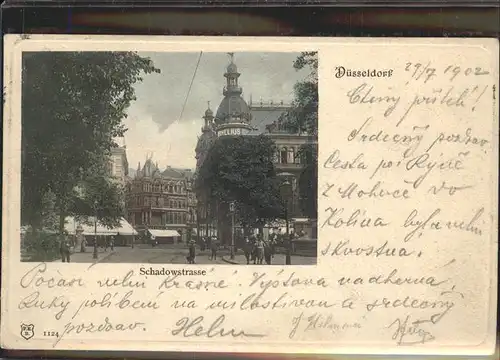 Düsseldorf
29/7 1902
Ctěný příteli!
Srdečný pozdrav
Cesta po Rýně
z Mohuče do
Kolína byla velmi
skvostna.
HELIUS
Schadowstrasse
Počasí velmi krásné. Výstava nadherná.
Ruky políbení na milostivou a srdečný
pozdrav.
1124